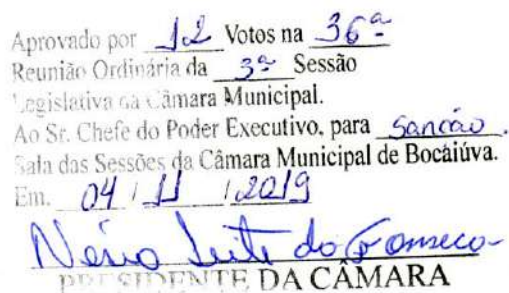 Aprovado por 12 Votos na 36ª
Reunião Ordinária da 3ª Sessão
Legislativa da Câmara Municipal.
Ao Sr. Chefe do Poder Executivo, para Sanção.
Sala das Sessões da Câmara Municipal de Bocaiúva.
Em. 04 / 11 / 2019
Leite da Fonseca
PRESIDENTE DA CÂMARA